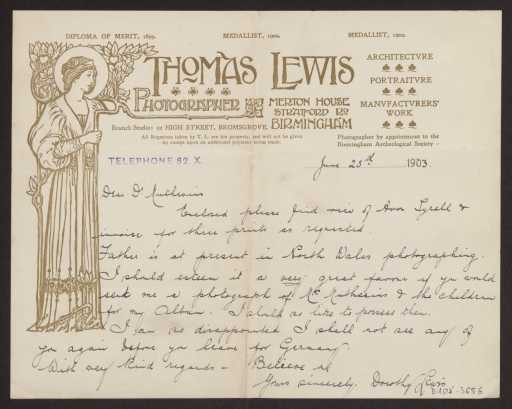 DIPLOMA OF MERIT, 1899. MEDALLIST, 1900. MEDALLIST, 1902.
THOMAS LEWIS
PHOTOGRAPHER
MERTON HOUSE
STRATFORD RD
BIRMINGHAM
ARCHITECTVRE
PORTRAITVRE
MANVFACTVRERS'
WORK
Branch Studio: 10 HIGH STREET, BROMSGROVE.
All Negatives taken by T. L. are his property, and will not be given
up except upon an additional payment being made.
Photographer by appointment to the
Birmingham Archeological Society -
TELEPHONE 82 X.
June 23rd 1903
Dear Dr
Enclosed please find view of Avon &
invoice for three prints as requested.
Father is at present in North Wales photographing.
I should esteem it a very great favour if you would
send me a photograph of Mrs & the children
for my Album. I should so like to possess them.
I am so disappointed I shall not see any of
you again before you leave for Germany
With very kind regards - Believe me
Yours sincerely, Dorothy Lewis